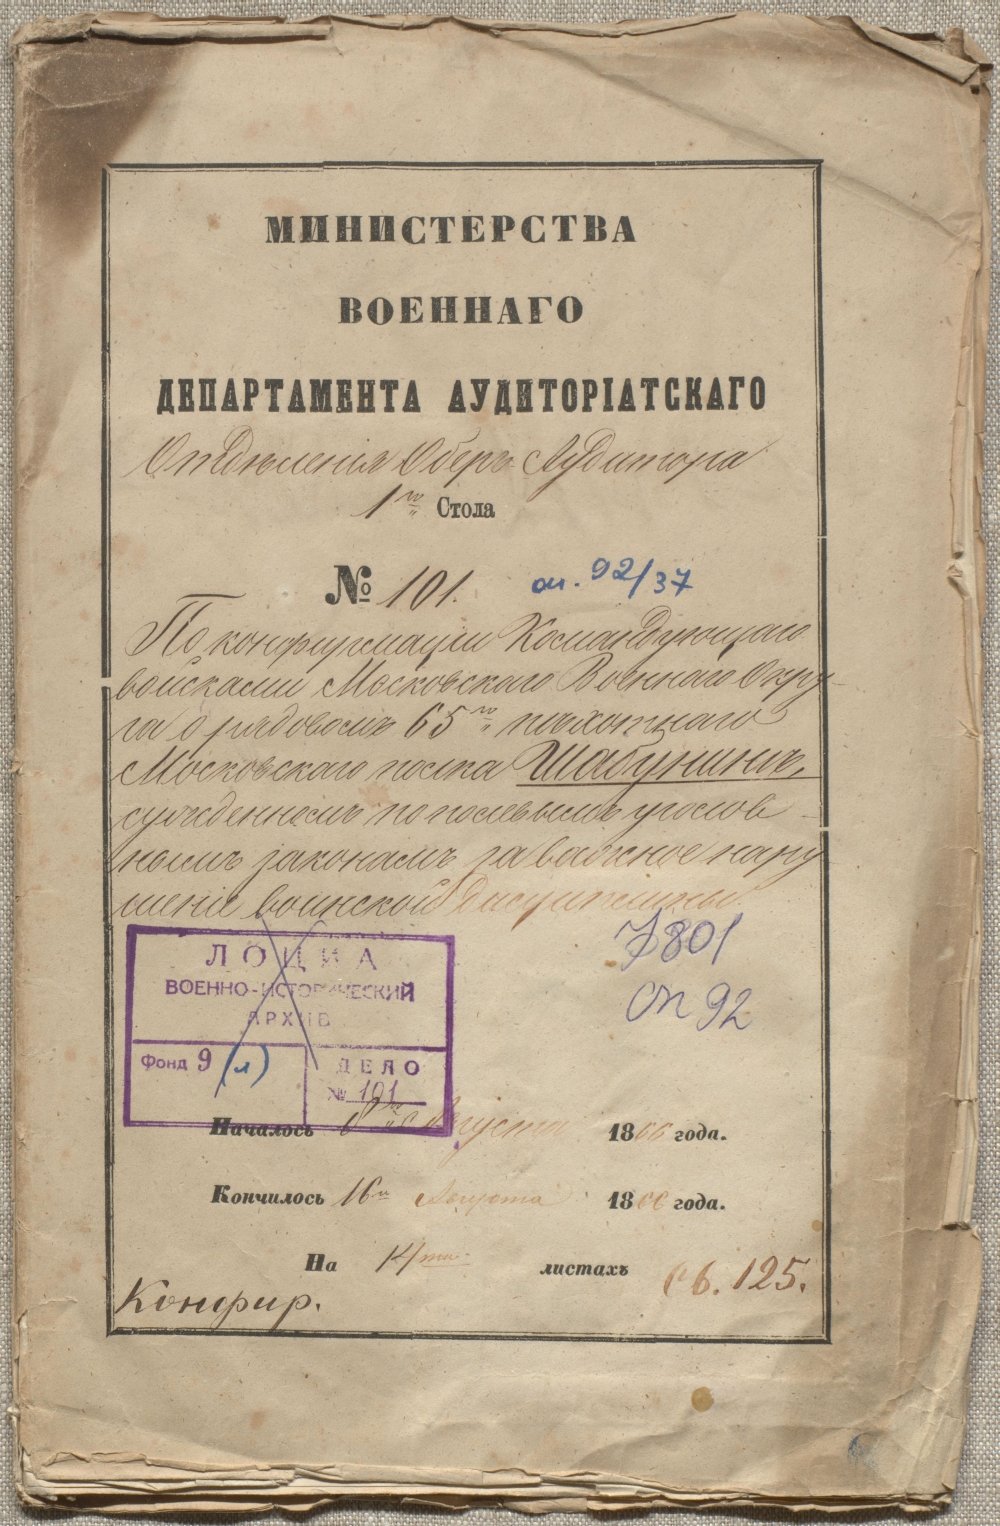 МИНИСТЕРСТВА
ВОЕННАГО
ДЕПАРТАМЕНТА АУДИТОРІАТСКАГО
Отдѣленія Оберъ-Аудитора
1го Стола
№ 101. оп. 92/37
По конфирмаціи Командующаго
войсками Московскаго Военнаго Окру-
га о рядовомъ 65го пѣхотнаго
Московскаго полка Шабунинъ,
сужденномъ по полевымъ уголов-
нымъ законамъ за важное нару-
шеніе воинской дисциплины
7801
оп 92
ЛОЦИА
ВОЕННО-ИСТОРИЧЕСКИЙ
АРХИВ
Фонд 9 (л)
ДЕЛО
№ 101
Началось 8го Августа 1866 года.
Кончилось 16го Августа 1866 года.
На 14ти листахъ
св. 125.
Конфир.